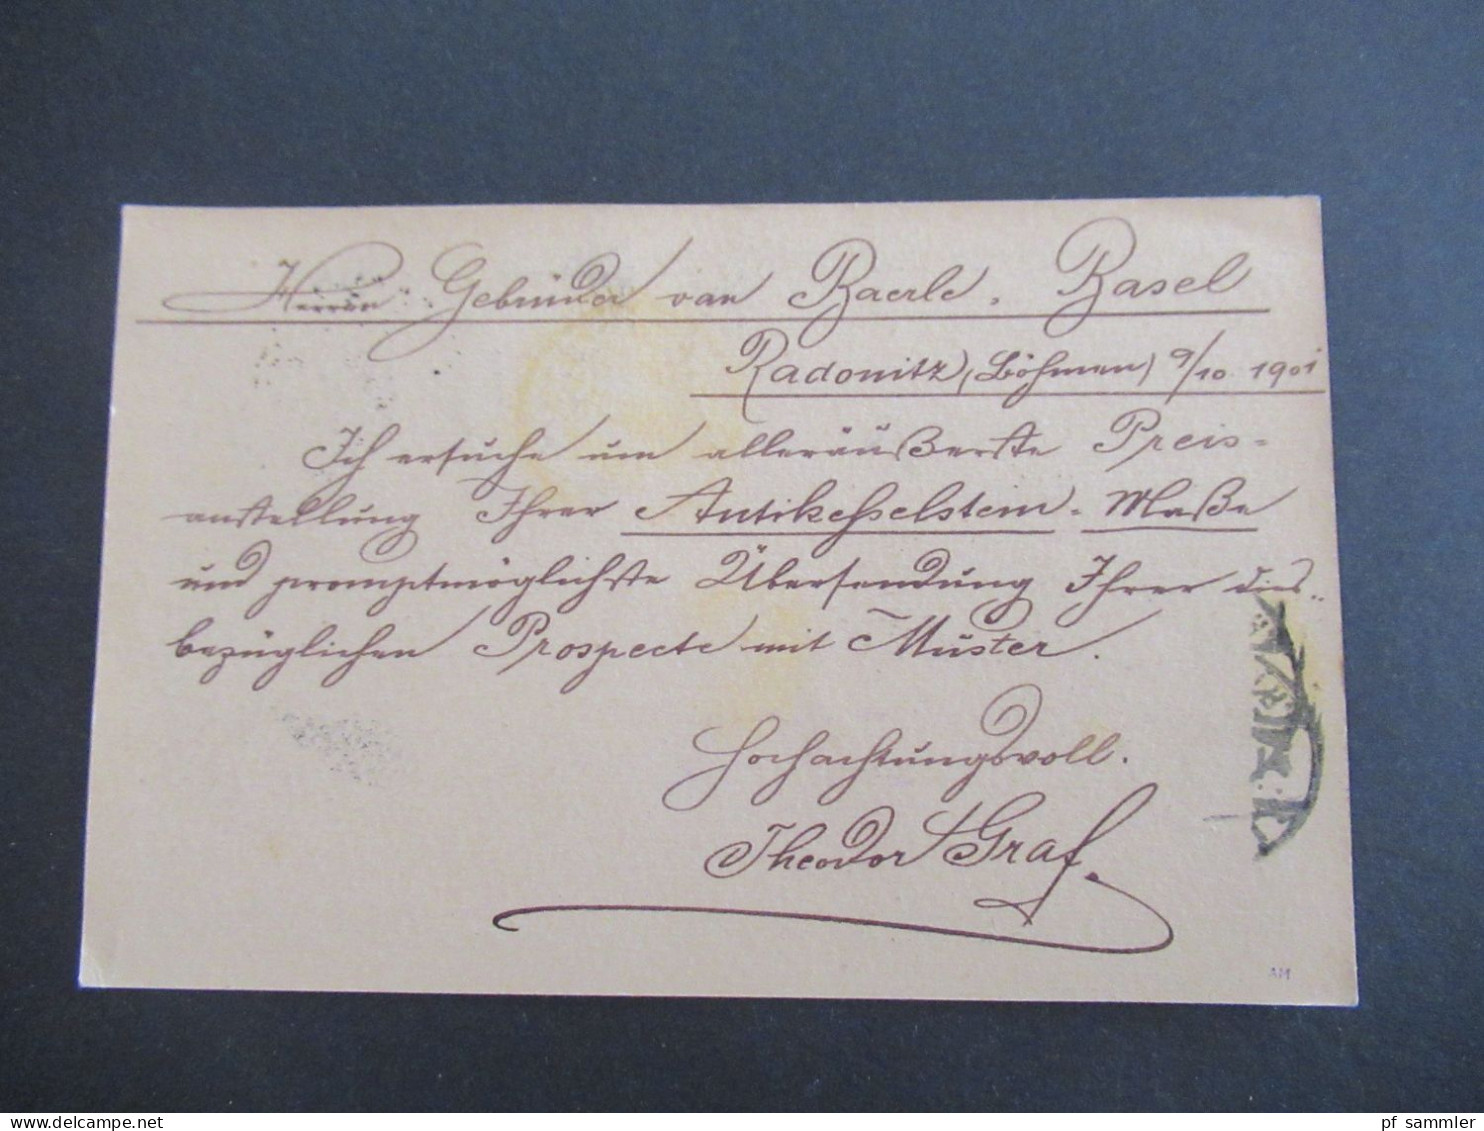 Herren Gebrüder van Baerle. Basel
Radonitz, (Böhmen) 9/10 1901
Ich ersuche um alleräußerste Preis-
anstellung Ihrer Antikesselstein-Maße
und promptmöglichste Übersendung Ihrer dies-
bezüglichen Prospecte mit Muster.
Hochachtungsvoll.
Theodor Graf.
AM
pf sammler
delcampe.net